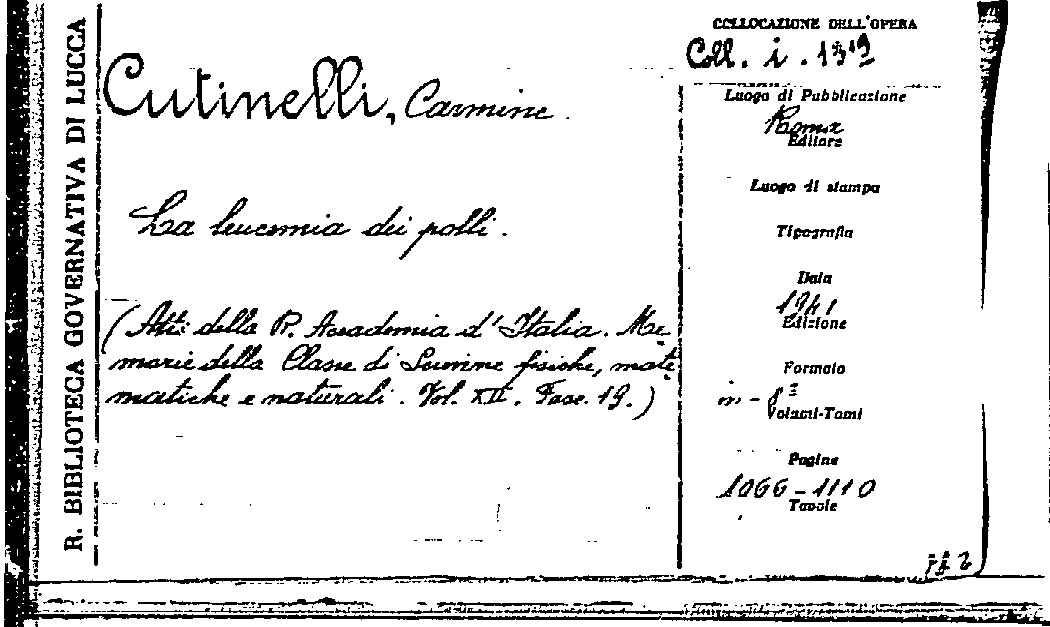 R. BIBLIOTECA GOVERNATIVA DI LUCCA
Cutinelli, Carmine.
La leucemia dei polli.
(Atti della R. Accademia d'Italia. Me-
morie della Classe di Scienze fisiche, mate-
matiche e naturali. Vol. XII. Fasc. 19.)
COLLOCAZIONE DELL'OPERA
Coll. i. 1319
Luogo di Pubblicazione
Roma
Editore
Luogo di stampa
Tipografia
Data
1941
Edizione
Formato
in-8º
Volumi-Tomi
Pagine
1066-1110
Tavole